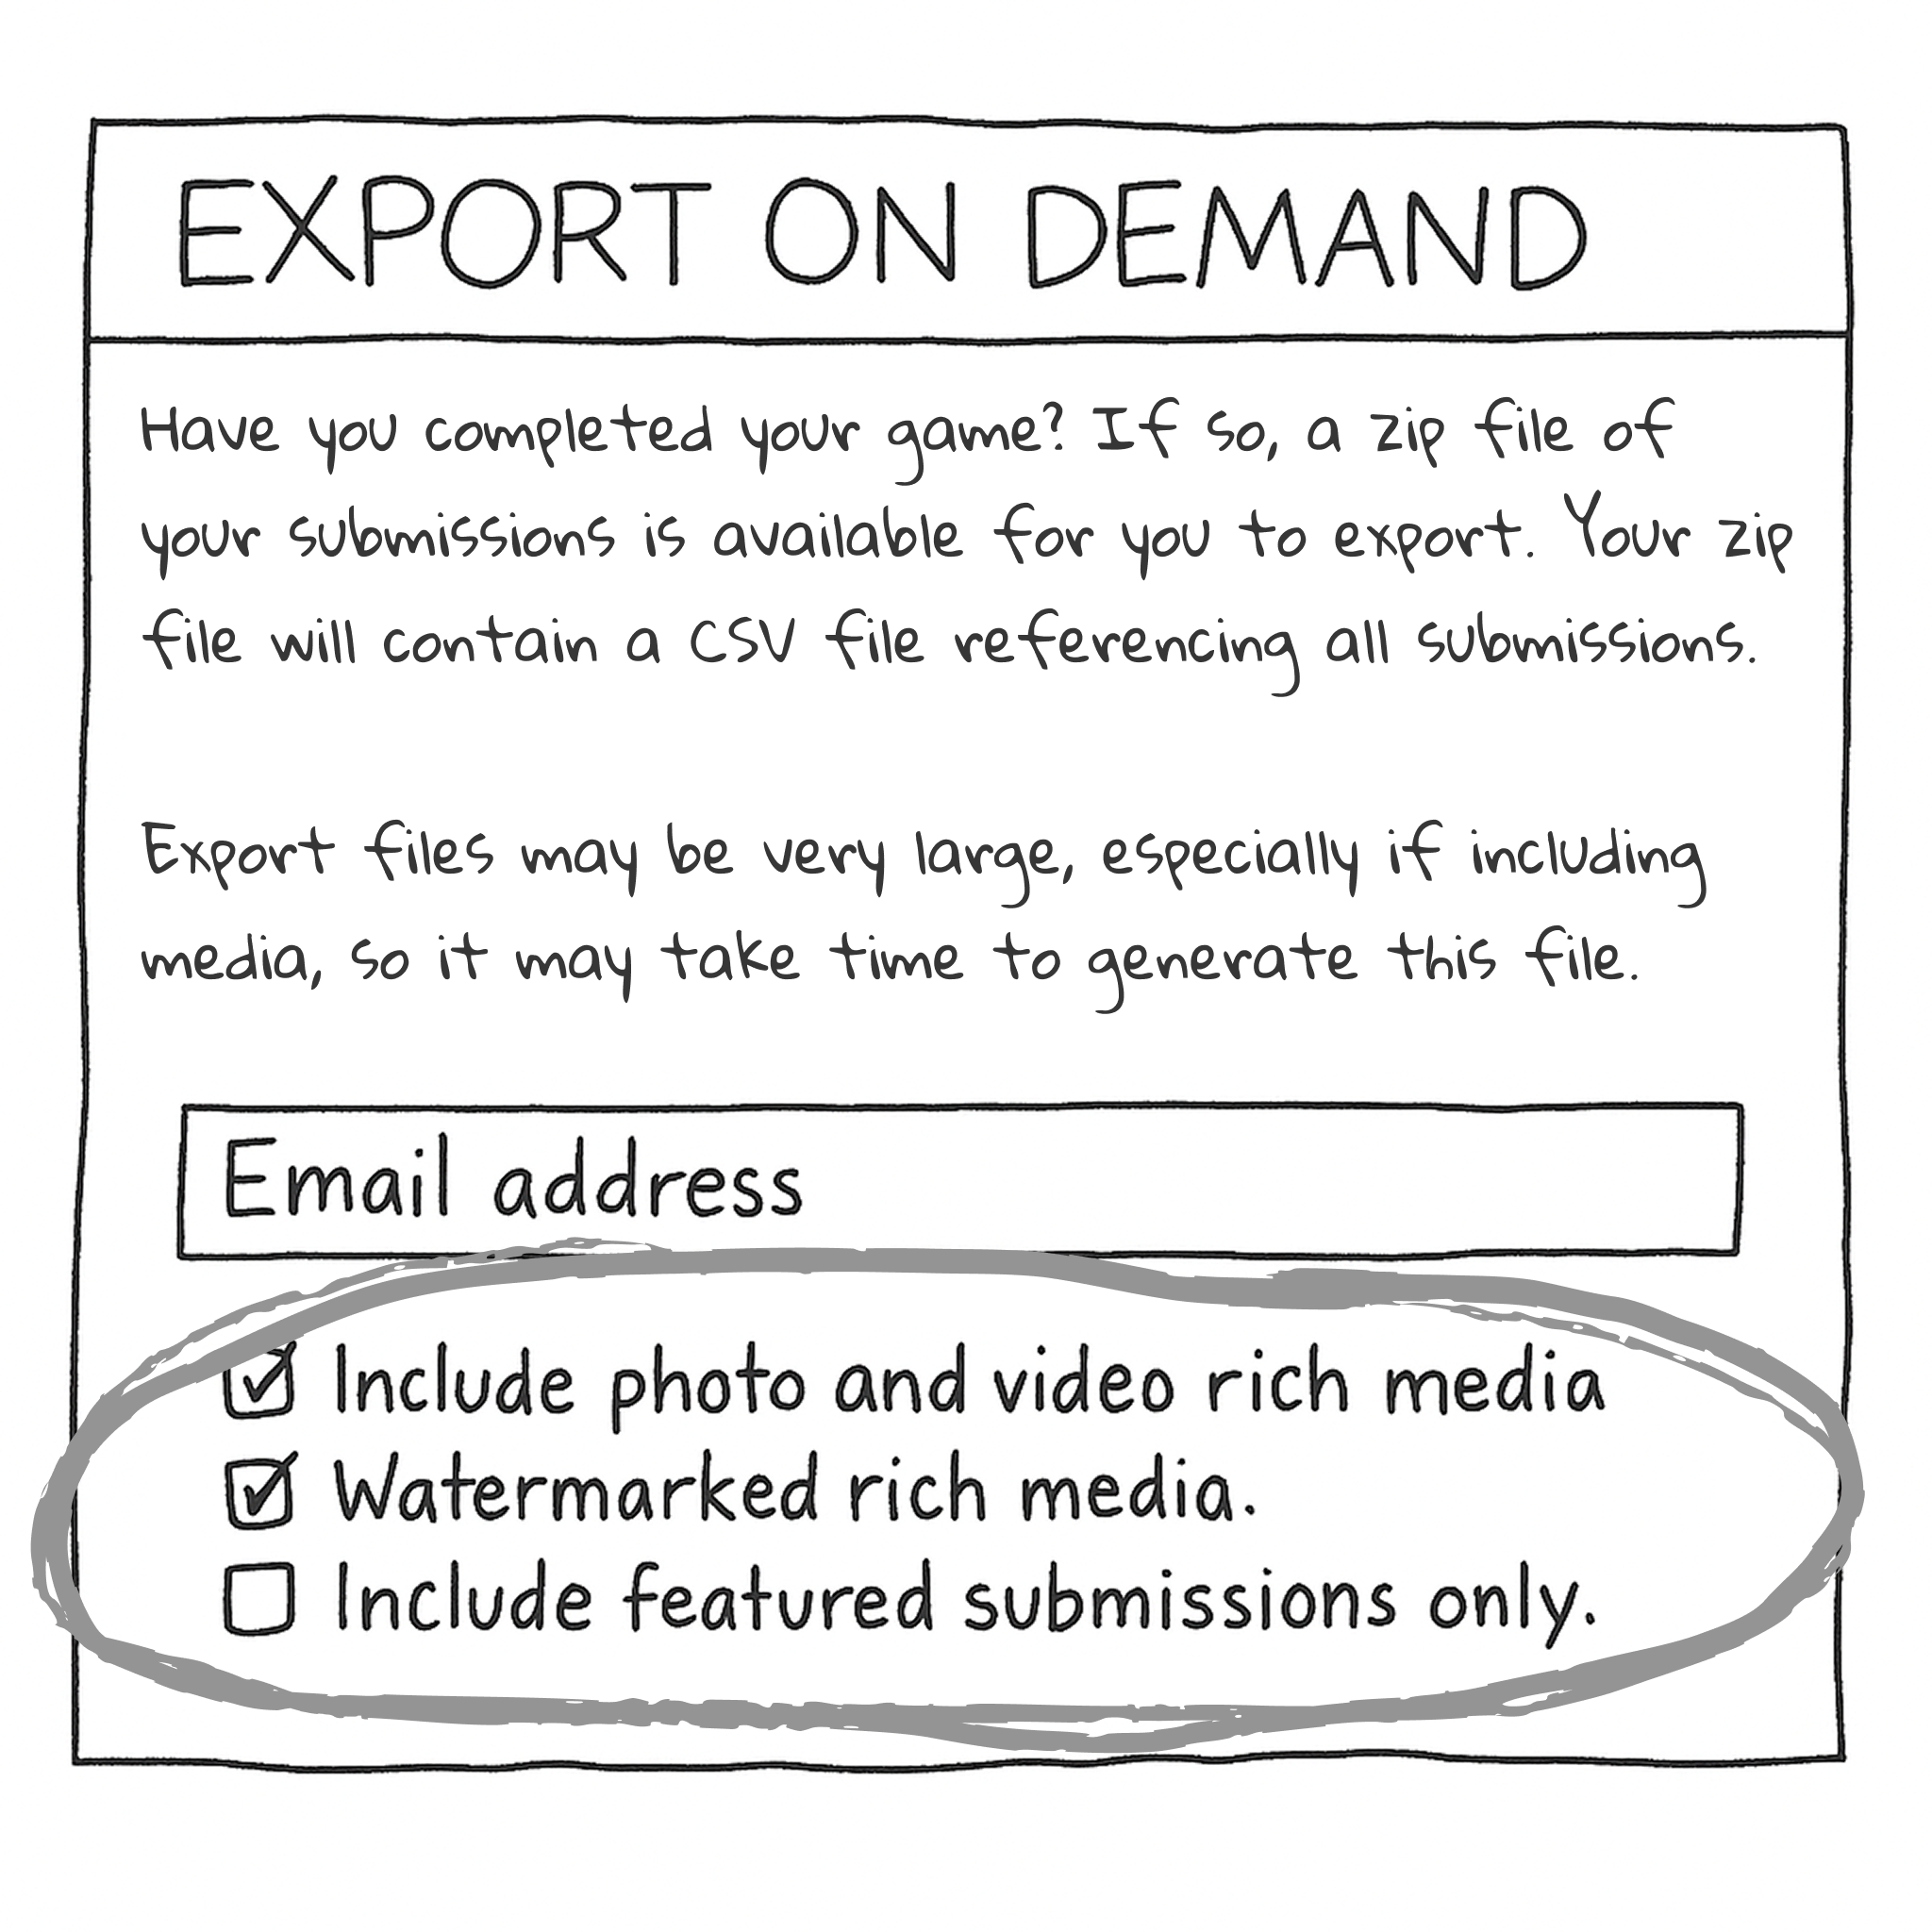 EXPORT ON DEMAND
Have you completed your game? If so, a zip file of
your submissions is available for you to export. Your zip
file will contain a CSV file referencing all submissions.
Export files may be very large, especially if including
media, so it may take time to generate this file.
Email address
Include photo and video rich media
Watermarked rich media.
Include featured submissions only.